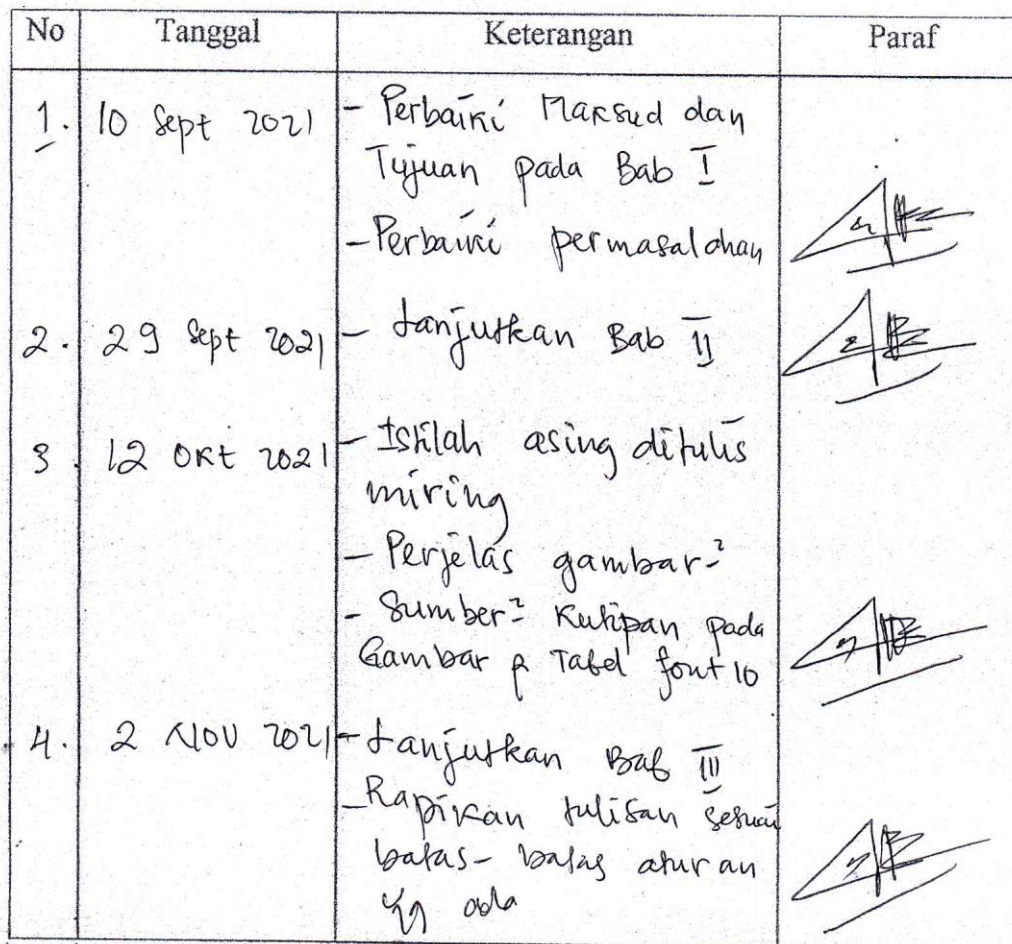 No Tanggal Keterangan Paraf
1. 10 Sept 2021 - Perbaiki Maksud dan
Tujuan pada Bab I
- Perbaiki permasalahan
2. 29 Sept 2021 - Lanjutkan Bab II
3. 12 Okt 2021 - Istilah asing ditulis
miring
- Perjelas gambar²
- Sumber² Kutipan pada
Gambar & Tabel font 10
4. 2 Nov 2021 - Lanjutkan Bab III
- Rapikan tulisan sesuai
batas-batas aturan
yg ada